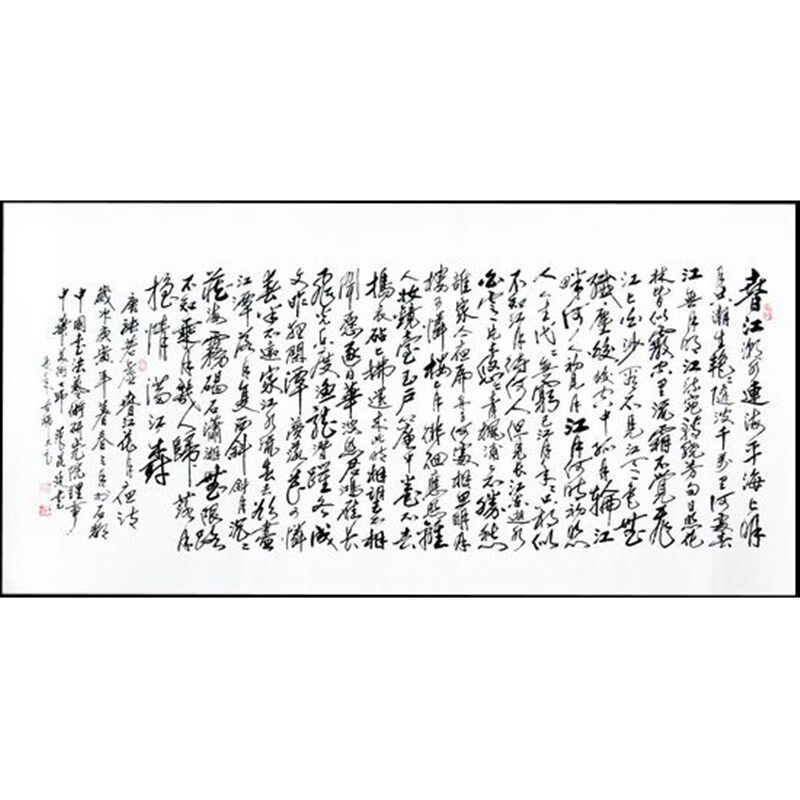 春江潮水連海平海上明
月共潮生灔灔隨波千萬里何處春
江無月明江流宛轉繞芳甸月照花
林皆似霰空里流霜不覺飛
汀上白沙看不見江天一色無
纖塵皎皎空中孤月輪江
畔何人初見月江月何時初照
人人生代代無窮已江月年年只相似
不知江月待何人但見長江送流水
白雲一片去悠悠青楓浦上不勝愁
誰家今夜扁舟子何處相思明月
樓可憐樓上月徘徊應照離
人妝鏡臺玉戶簾中卷不去
搗衣砧上拂還來此時相望不相
聞願逐月華流照君鴻雁長
飛光不度魚龍潛躍水成
文昨夜閑潭夢落花可憐
春半不還家江水流春去欲盡
江潭落月復西斜斜月沉沉
藏海霧碣石瀟湘無限路
不知乘月幾人歸落月
搖情滿江樹
唐張若虛春江花月夜詩
歲次戊寅年暮春之月於石都
中國書法藝術研究院理事
中華美術